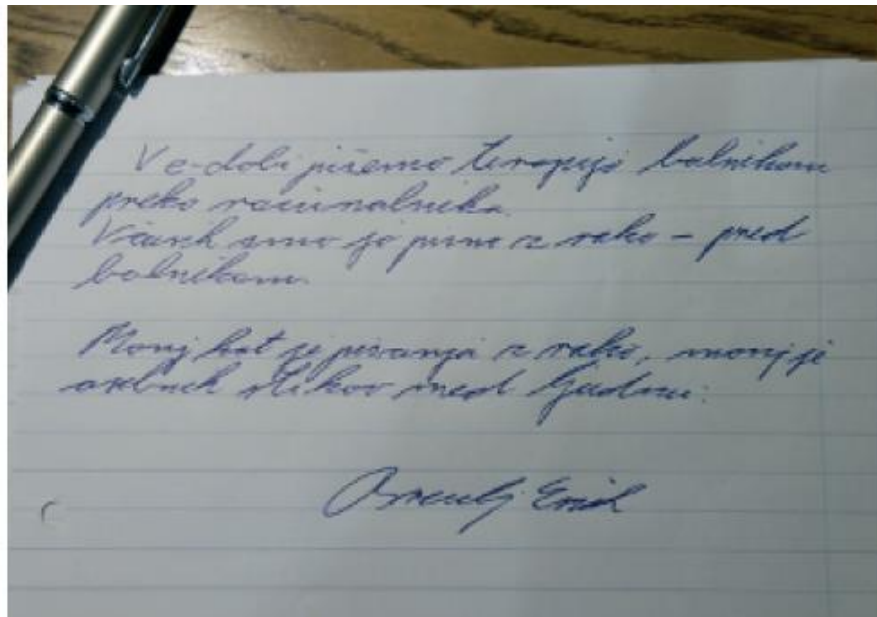 V e-dobi pišemo terapijo bolnikom
preko računalnika.
Včasih smo jo pisno z roko - pred
bolnikom.
Manj kot je pisanja z roko, manj je
osebnih stikov med ljudmi.
Erih